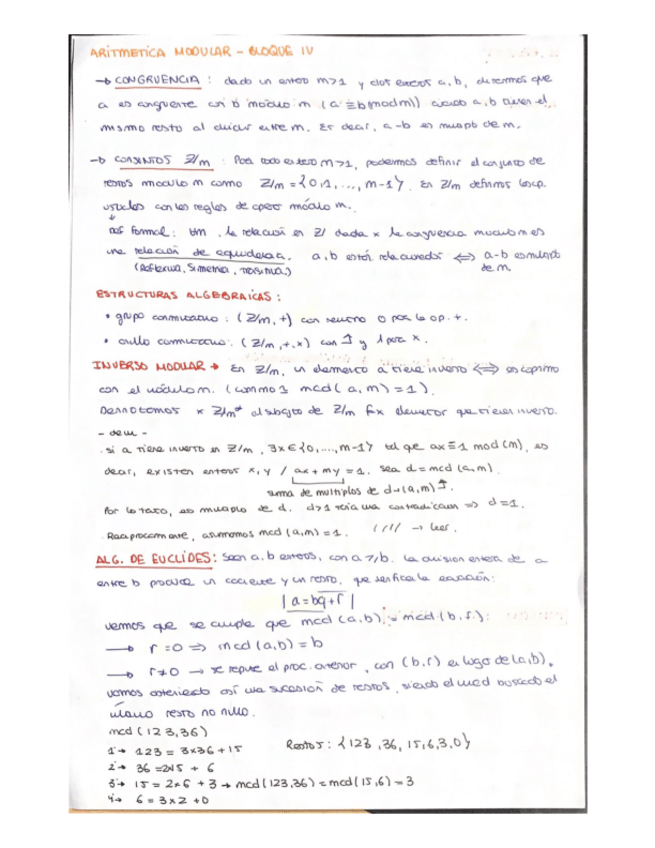 ARITMETICA MODULAR - BLOQUE IV
→ CONGRUENCIA : dado un entero m>1 y dos enteros a, b, diremos que
a es congruente con b módulo m (a ≡ b(mod m)) cuando a, b tienen el
mismo resto al dividir entre m. Es decir, a-b es multiplo de m.
→ CONJUNTOS Z/m : Para todo entero m>1, podemos definir el conjunto de
restos modulo m como Z/m = {0,1, ..., m-1}. En Z/m definimos las op.
usuales con las reglas de operar módulo m.
↓
Def formal : ∀m, la relación en Z dada x la congruencia modulo m es
una relación de equivalencia. a, b están relacionados ⟺ a-b es multiplo
(Reflexiva, Simetrica, Transitiva) de m.
ESTRUCTURAS ALGEBRAICAS :
• grupo conmutativo : (Z/m, +) con neutro 0 para la op. +.
• anillo conmutativo : (Z/m, +, x) con y 1 para x.
INVERSO MODULAR → En Z/m, un elemento a tiene inverso ⟺ es coprimo
con el módulo m. (como mcd (a, m) = 1).
Denotamos x Z/m* al subcjto de Z/m x elementos que tienen inverso.
- dem -
. si a tiene inverso en Z/m, ∃x∈{0, ..., m-1} tal que ax ≡ 1 mod (m), es
decir, existen enteros x, y / ax + my = 1. Sea d = mcd (a, m).
suma de multiplos de d → (a, m)
Por lo tanto, es multiplo de d. d>1 sería una contradicción ⇒ d = 1.
. Reciprocamente, asumimos mcd (a, m) = 1. //// → leer.
ALG. DE EUCLIDES : Sean a, b enteros, con a ≥ b. La division entera de a
entre b produce un cociente y un resto, que verifica la ecuación:
| a = bq + r |
vemos que se cumple que mcd (a, b) = mcd (b, r) :
→ r = 0 ⇒ mcd (a, b) = b
→ r ≠ 0 → se repite el proc. anterior, con (b, r) en lugar de (a, b).
vamos obteniendo así una sucesión de restos, siendo el mcd buscado el
último resto no nulo.
mcd (123, 36)
1º→ 123 = 3x36 + 15 Restos : {123, 36, 15, 6, 3, 0}
2º→ 36 = 2x15 + 6
3º→ 15 = 2x6 + 3 → mcd (123, 36) = mcd (15, 6) = 3
4º→ 6 = 3x2 + 0